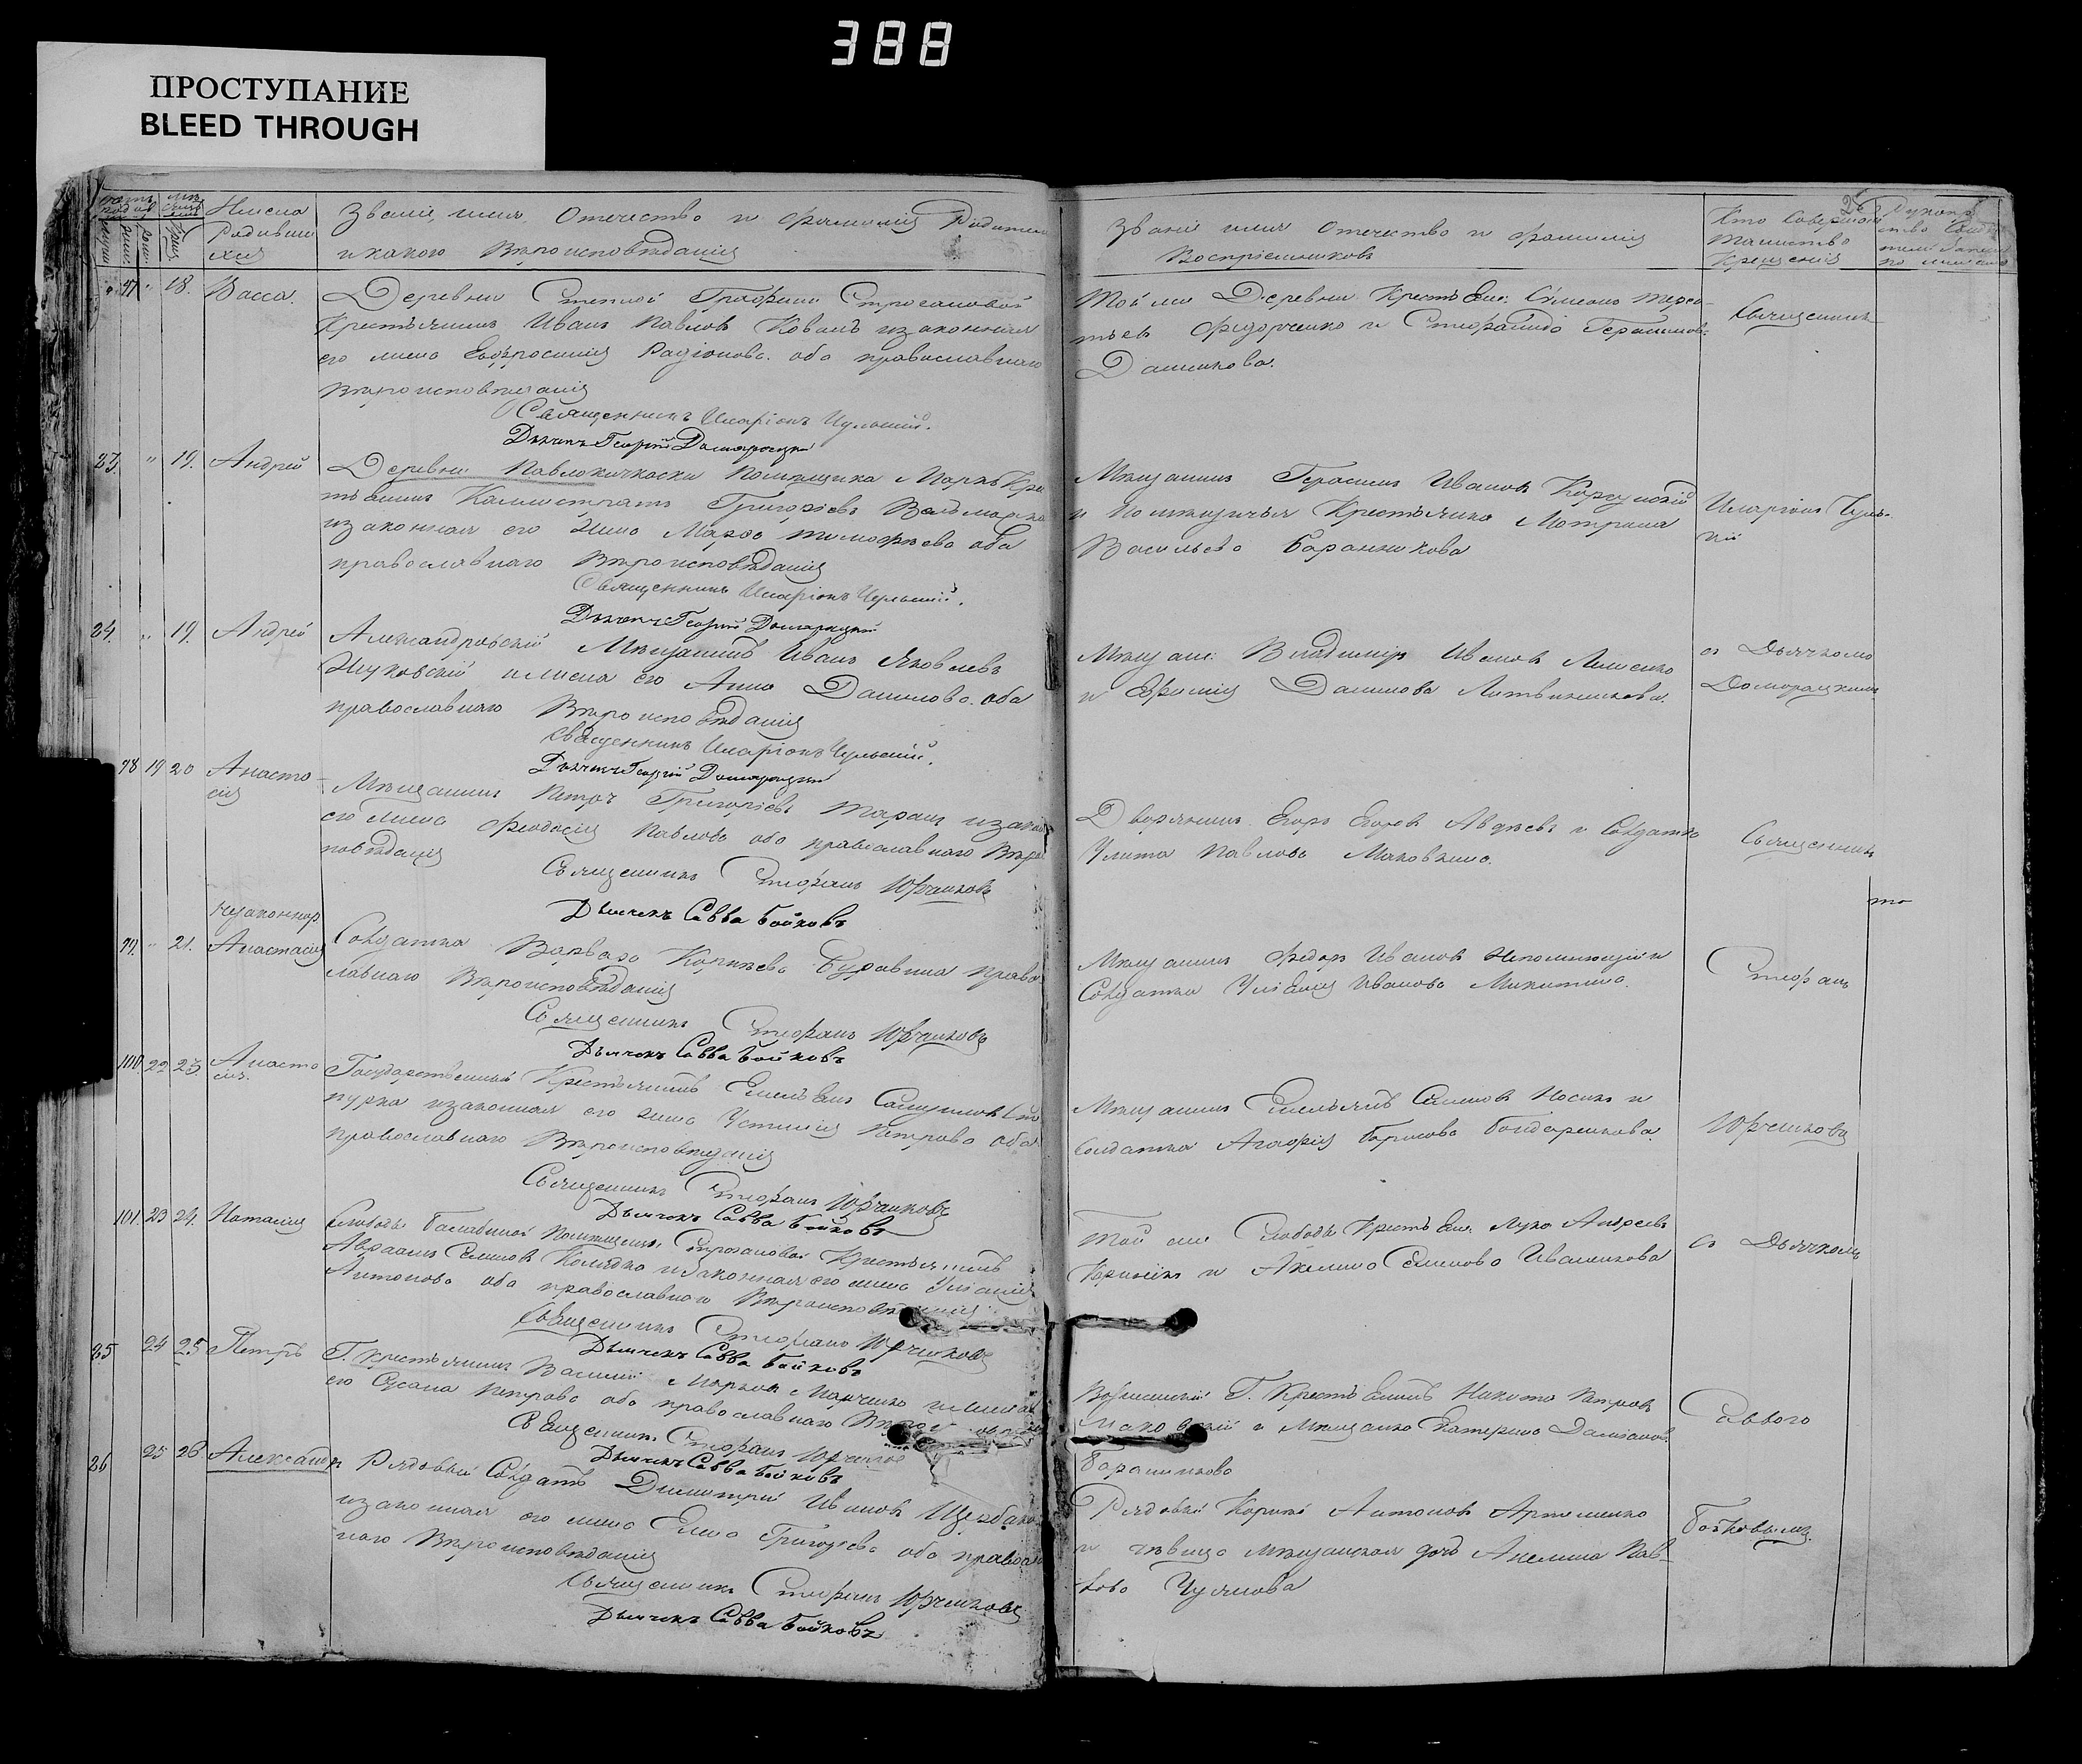 388
ПРОСТУПАНИЕ
BLEED THROUGH
Имена
Родивши
хся
Званіе имя Отечество и фамилія Родителей
и какого Вѣроисповѣданія
Званіе имя Отечество и фамилія
Воспріемниковъ
Кто Совершалъ
Таинство
Крещенія
26
97 " 18. Васса.
Деревни Степной Графини Строгановой
Крестьянинъ Иванъ Павловъ Коваль и законная
его жена Евфросинія Радіонова. оба православнаго
Вѣроисповѣданія
Священникъ Иларіонъ Чульскій.
Дьячекъ Георгій Доморацкій
Той же Деревни Крестьян: Сѵмеонъ Терен-
тьевъ Федорченко и Стефанида Герасимов:
Дашкова.
Священник
23. " 19. Андрей
Деревни Павлокичкаски Помѣщика Маркъ Кре
стьянинъ Каллистратъ Григорьевъ
и законная его жена Марѳа Тимофѣева оба
православнаго Вѣроисповѣданія
Священникъ Иларіонъ Чульскій.
Дьячекъ Георгій Доморацкій
Мѣщанинъ Герасимъ Ивановъ
и Помѣщичья Крестьянка Матрона
Васильева Баранникова
Иларіонъ Чуль-
24. " 19. Андрей
Александровскій Мѣщанинъ Иванъ Яковлевъ
Жуковскій и жена его Анна Данилова. оба
православнаго Вѣроисповѣданія
Священникъ Иларіонъ Чульскій.
Дьячекъ Георгій Доморацкій
Мѣщан: Владимиръ Ивановъ Лысенко
и Данилова Литвиненкова.
съ Дьячкомъ
Доморацкимъ
98 19 20 Анаста
сія
Мѣщанинъ Петръ Григорьевъ Таранъ и законн
его жена Феодосія Павлова оба православнаго Вѣро
повѣданія
Священникъ Стефанъ Юрченковъ
Дьячекъ Савва Бойковъ
Дворянинъ Егоръ Егоровъ Авдѣевъ и Солдатка
Улита Павлова Маковкина.
Священникъ
незаконнор
99. " 21. Анастасія
Солдатка Варвара Корнѣева Буравина право
славнаго Вѣроисповѣданія
Священникъ Стефанъ Юрченковъ
Дьячекъ Савва Бойковъ
Мѣщанинъ Федоръ Ивановъ Непомнющій и
Солдатка Уліанія Иванова Микитина.
Стефанъ
100. 22 23. Анаста
сія.
Государственный Крестьянинъ Емельянъ Самуиловъ
пурка и законная его жена Устинія Петрова оба
православнаго Вѣроисповѣданія
Священникъ Стефанъ Юрченковъ
Дьячекъ Савва Бойковъ
Мѣщанинъ Емельянъ Семеновъ Носикъ и
Солдатка Агафія Борисова Бондаренкова.
Юрченковъ
101. 23 24. Наталія
Слободы Балабиной Помѣщицы Строгановой Крестьянинъ
Авраамъ Семеновъ Коляда и законная его жена Уліанія
Антонова оба православнаго Вѣроисповѣданія
Священникъ Стефанъ Юрченковъ
Дьячекъ Савва Бойковъ
Той же Слободы Крестьян: Лука Андреевъ
и Акилина Семенова Иваненкова
съ Дьячкомъ
25 24 25 Петръ
Г. Крестьянинъ Василій Марковъ Марченко и жена
его Сусана Петрова оба православнаго
Священникъ Стефанъ Юрченковъ
Дьячекъ Савва Бойковъ
Г. Крестьянинъ Никита Петровъ
и Мѣщанка Екатерина Даміанов:
Баранникова
Саввою
26 25 26 Александръ
Рядовый Солдатъ Димитрій Ивановъ Щербако
и законная его жена Елена Григорьева оба правосл
наго Вѣроисповѣданія
Священникъ Стефанъ Юрченковъ
Дьячекъ Савва Бойковъ
Рядовый Корній Антоновъ Артеменко
и дѣвица мѣщанская дочь Акелина Пав-
лова
Бойковымъ.